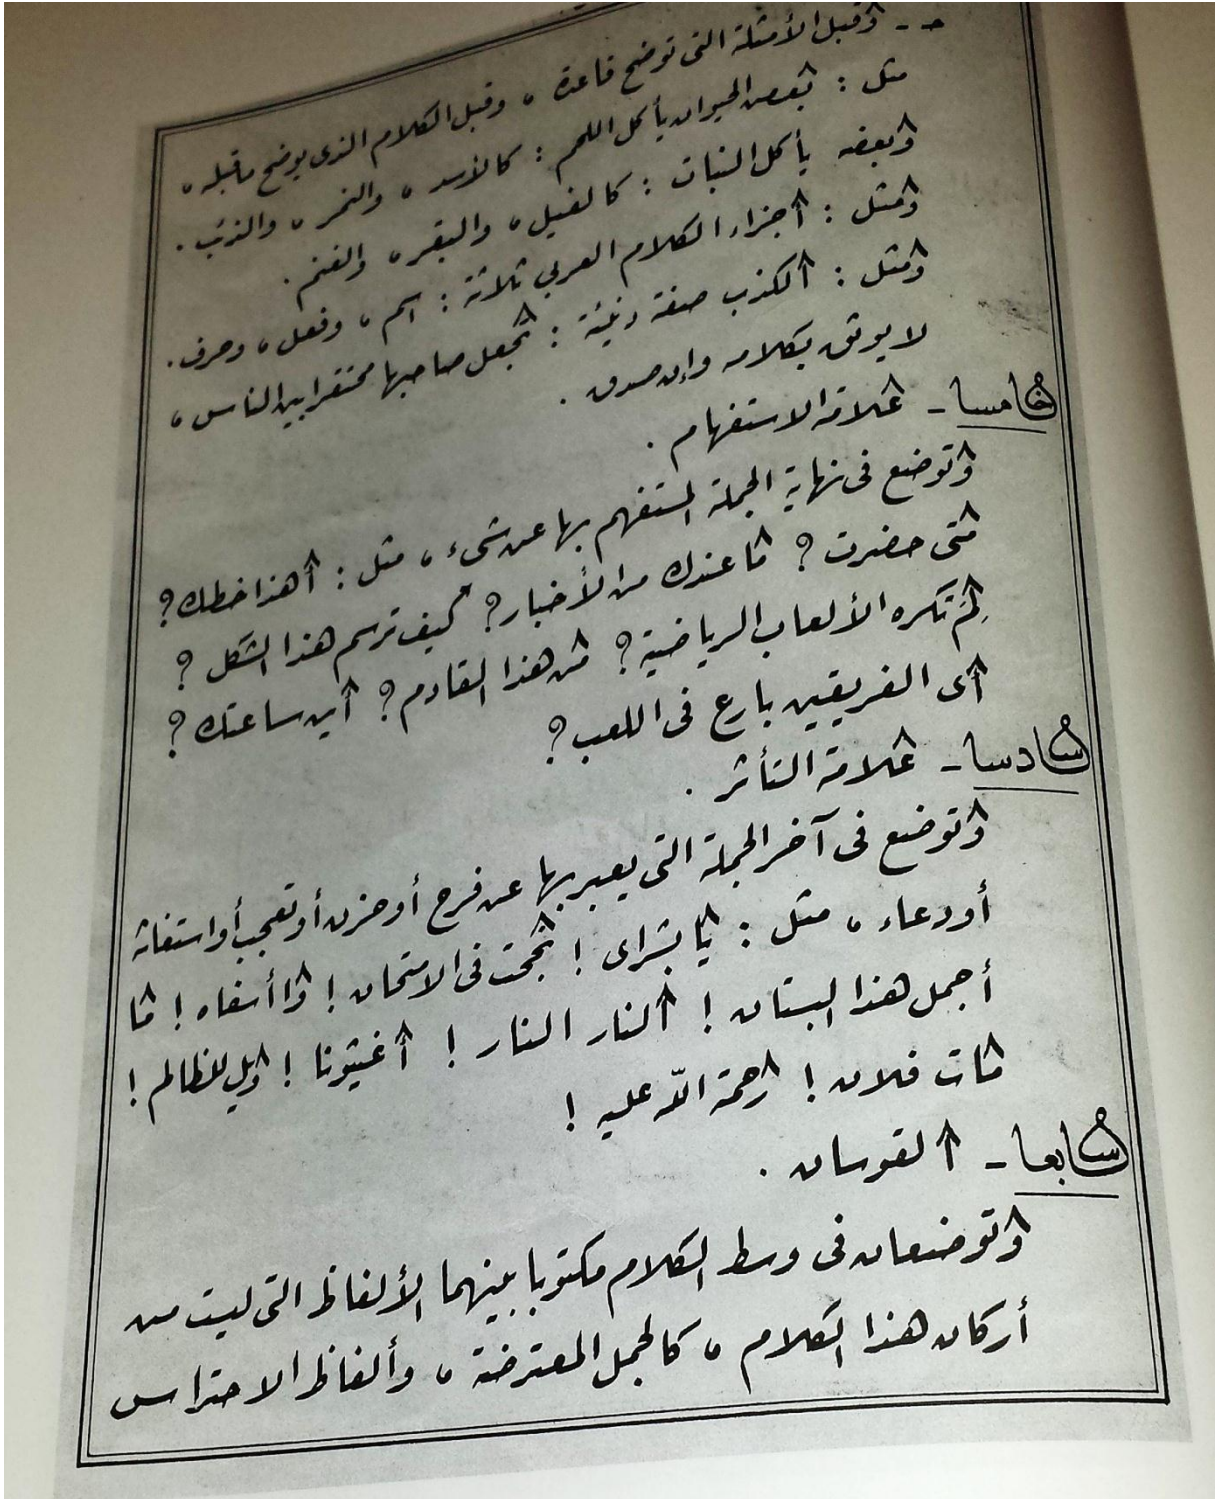 حـ - وقبل الأمثلة التى توضح قاعدة ، وقبل الكلام الذى يوضح ما قبله ،
مثل : بعض الحيوان يأكل اللحم : كالأسد ، والنمر ، والذئب .
وبعضه يأكل النبات : كالفيل ، والبقر ، والغنم .
ومثل : أجزاء الكلام العربى ثلاثة : اسم ، وفعل ، وحرف .
ومثل : الكذب صفة دنيئة : تجعل صاحبها محتقرا بين الناس ،
لا يوثق بكلامه وإن صدق .
خامسا - علامة الاستفهام .
وتوضع فى نهاية الجملة المستفهم بها عن شىء ، مثل : أهذا خطك ؟
متى حضرت ؟ ما عندك من الأخبار ؟ كيف ترسم هذا الشكل ؟
لِمَ تكره الألعاب الرياضية ؟ من هذا القادم ؟ أين ساعتك ؟
أى الفريقين بارع فى اللعب ؟
سادسا - علامة التأثر .
وتوضع فى آخر الجملة التى يعبر بها عن فرح أو حزن أو تعجب أو استغاثة
أو دعاء ، مثل : يا بشراى ! نجحت فى الامتحان ! وا أسفاه ! ما
أجمل هذا البستان ! النار النار ! أغيثونا ! ويل للظالم !
مات فلان ! رحمة الله عليه !
سابعا - القوسان .
وتوضعان فى وسط الكلام مكتوبا بينهما الألفاظ التى ليست من
أركان هذا الكلام ، كالجمل المعترضة ، وألفاظ الاحتراس